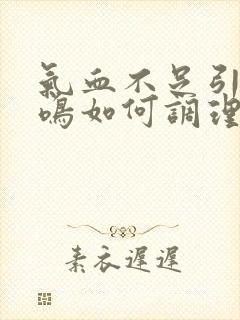 氣血不足引
鳴如何調理
素衣遲遲